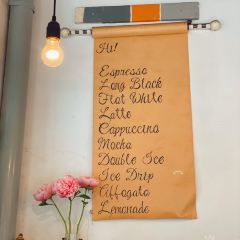 Hi!
Espresso
Long Black
Flat White
Latte
Cappuccino
Mocha
Double Ice
Ice Drip
Affogato
Lemonade